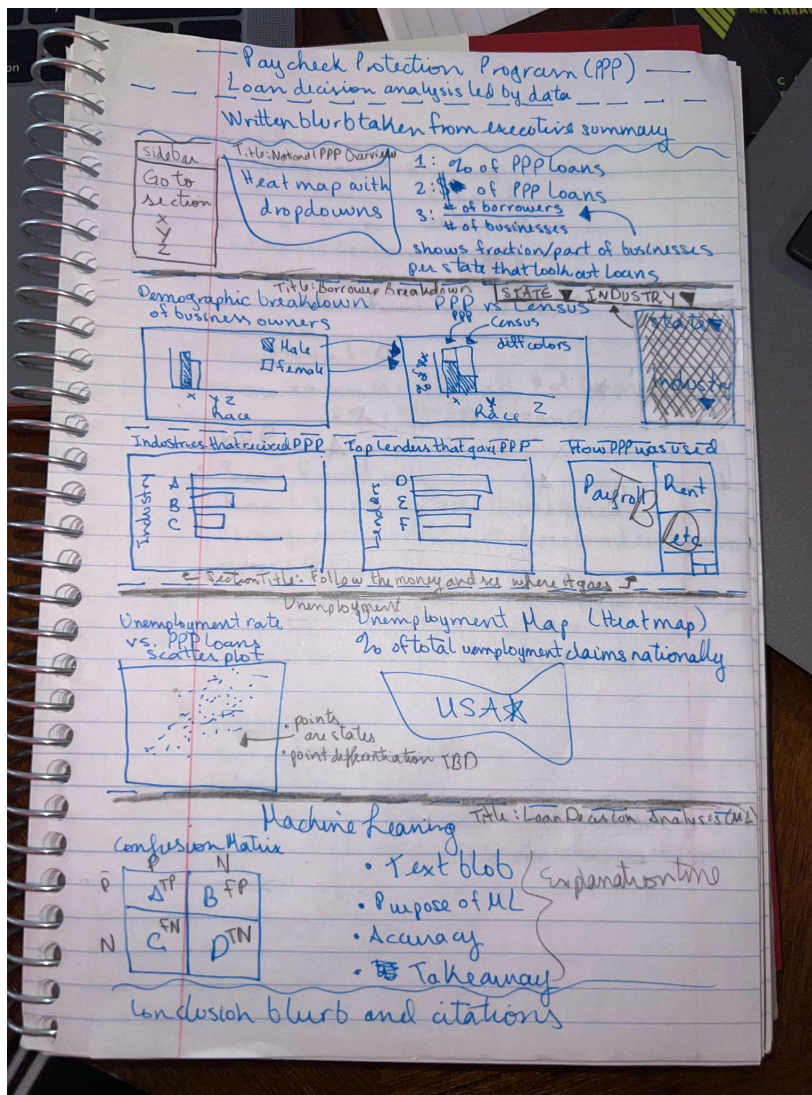 Paycheck Protection Program (PPP)
Loan decision analysis led by data
Written blurb taken from executive summary
sidebar
Go to
section
x
y
z
Title: National PPP Overview
Heat map with
dropdowns
1: % of PPP loans
2: $ of PPP Loans
3: # of borrowers
# of businesses
shows fraction/part of businesses
per state that took out loans
Title: Borrower Breakdown
STATE ▼ INDUSTRY ▼
Demographic breakdown
of business owners
Male
female
x y z
Race
PPP vs Census
PPP
census
diff colors
x y z
Race
state
industry
Industries that recived PPP
Industry
A
B
C
Top Lenders that gave PPP
Lenders
D
E
F
How PPP was used
Payroll
Rent
etc
← Section Title: Follow the money and see where it goes
Unemployment
Unemployment rate
vs. PPP Loans
scatter plot
• points
are states
• point differentiation TBD
Unemployment Map (Heatmap)
% of total unemployment claims nationally
USA
Machine Leaning
Title: Loan Decision Analysis (ML)
Confusion Matrix
P N
P A TP B FP
N C FN D TN
• Text blob
• Purpose of ML
• Accuracy
• Takeaway
Explanation time
Conclusion blurb and citations